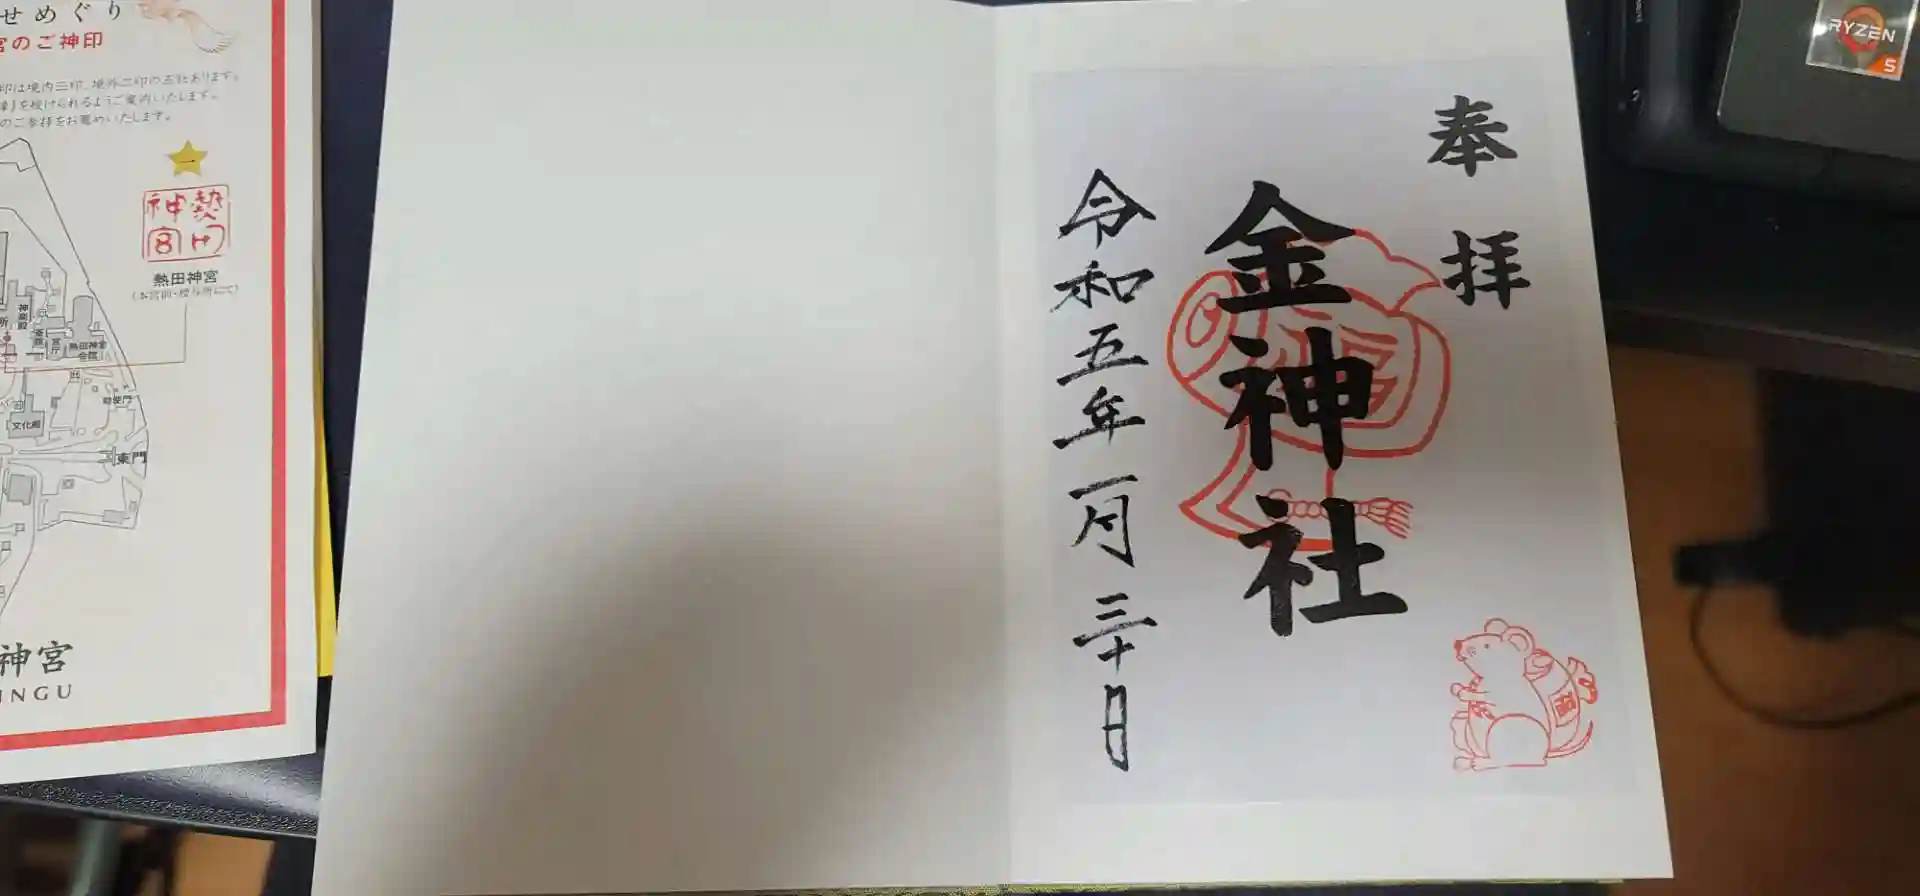 奉拝
金神社
令和五年一月三十日
福
RYZEN
5
せめぐり
宮のご神印
印は境内三印、境外二印の五社あります。
を授けられるようご案内いたします。
のご参拝をお薦めいたします。
一
熱田
神宮
熱田神宮
神楽殿
宮庁
熱田神宮
会館
文化殿
東門
神宮
INGU